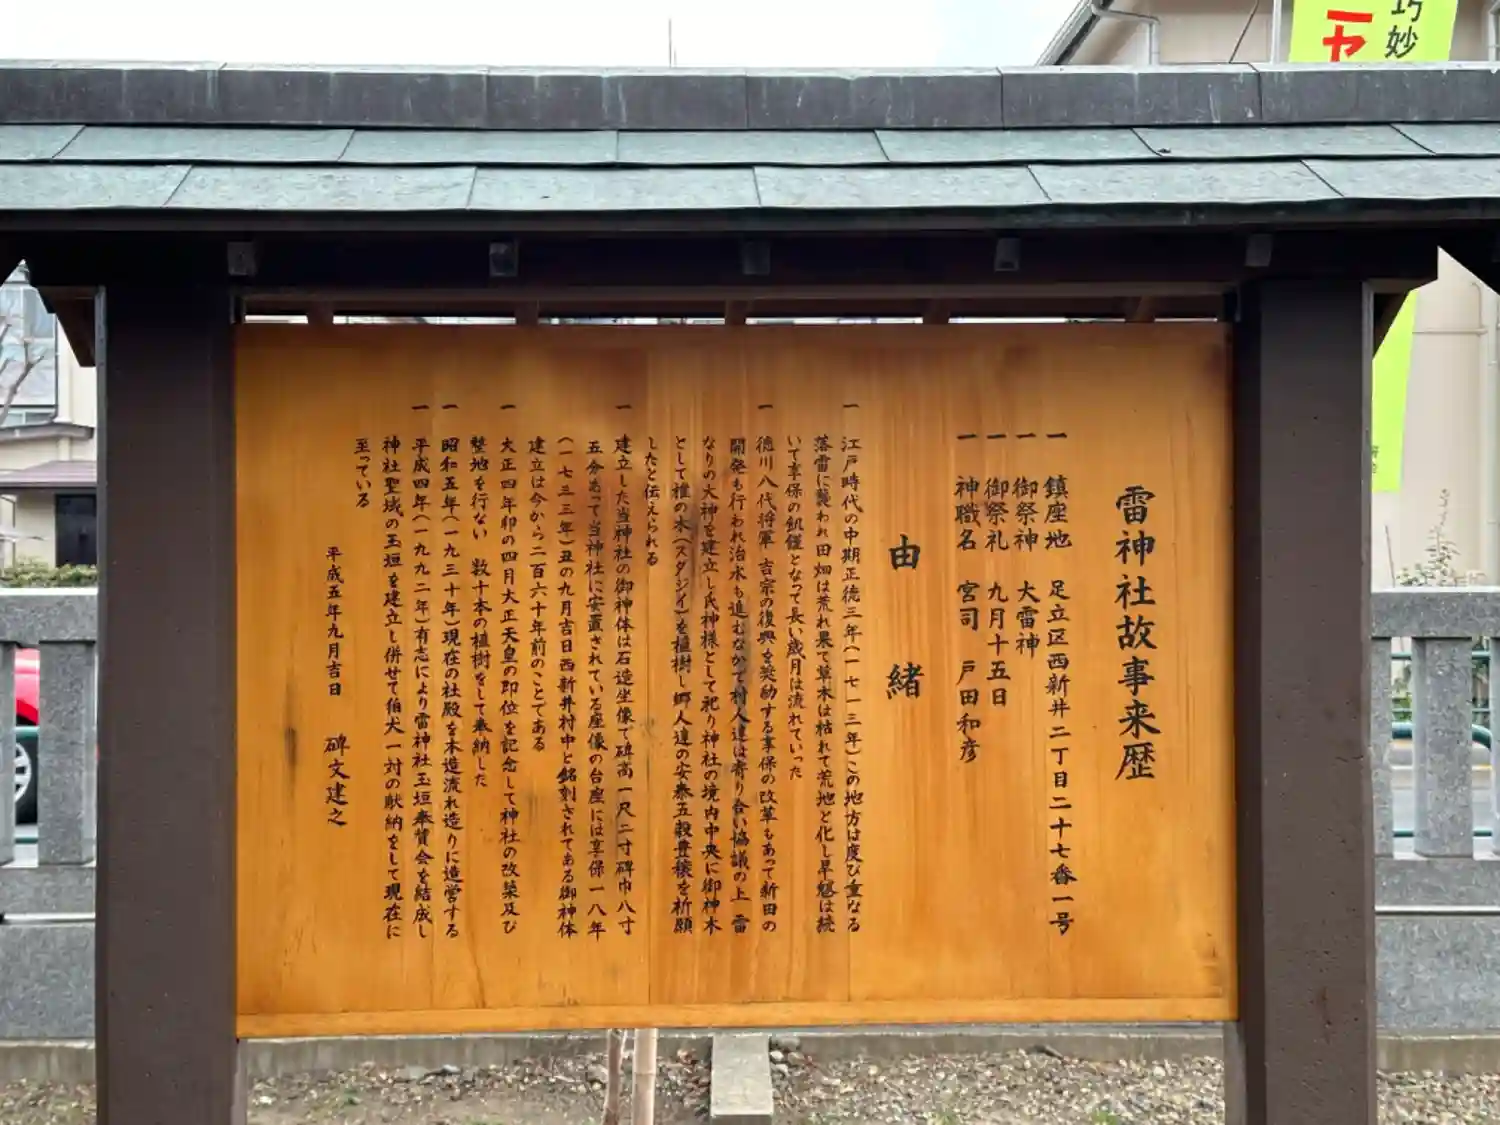 巧妙
雷神社故事来歴
一 鎮座地 足立区西新井二丁目二十七番一号
一 御祭神 大雷神
一 御祭礼 九月十五日
一 神職名 宮司 戸田和彦
由緒
一 江戸時代の中期正徳三年(一七一三年)この地方は度び重なる
落雷に襲われ田畑は荒れ果て草木は枯れて荒地と化し旱魃は続
いて享保の飢饉となって長い歳月は流れていった
一 徳川八代将軍 吉宗の復興を奨励する享保の改革もあって新田の
開発も行われ治水も進むなかで村人達は寄り合い協議の上 雷
なりの大神を建立し氏神様として祀り神社の境内中央に御神木
として椎の木(スダジイ)を植樹し郷人達の安泰五穀豊穣を祈願
したと伝えられる
一 建立した当神社の御神体は石造坐像で碑高一尺二寸碑巾八寸
五分あって当神社に安置されている座像の台座には享保一八年
(一七三三年)丑の九月吉日西新井村中と銘刻されてある御神体
建立は今から二百六十年前のことである
一 大正四年卯の四月大正天皇の即位を記念して神社の改築及び
整地を行ない 数十本の植樹をして奉納した
一 昭和五年(一九三十年)現在の社殿を木造流れ造りに造営する
一 平成四年(一九九二年)有志により雷神社玉垣奉賛会を結成し
神社聖域の玉垣を建立し併せて狛犬一対の献納をして現在に
至っている
平成五年九月吉日 碑文建之